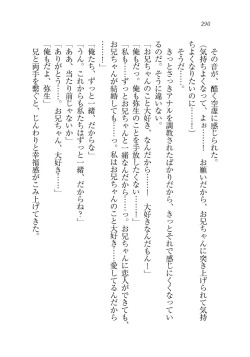 290
その音が、酷く空虚に感じられた。
「気持ちよくなって、よぉ……！　お願いだから、お兄ちゃんに突き上げられて気持
ちよくなりたいのに……！」
そうだ。
きっとさっきアナルを調教されたばかりだから、きっとそれで感じにくくなってい
るのだ。そうに違いない。
「お兄ちゃんのこと大好き、なんだから……！　大好きなんだもん！」
「俺もだっ。俺も弥生のことを手放したくない……！」
「私も……！　ずっとお兄ちゃんと一緒なんだから……っ。お兄ちゃんに恋人ができても、
お兄ちゃんが結婚しても……っ。お兄ちゃんのこと大好き……愛してるんだから
……！」
「俺たち、ずっと一緒、だからな」
「うん。これからも私たちはずっと一緒、だからね？」
「ああ、当たり前じゃないか」
「ありがとう……。お兄ちゃん、大好き……」
「俺もだよ、弥生」
兄と両手を繋ぐと、じんわりと幸福感がこみ上げてきた。